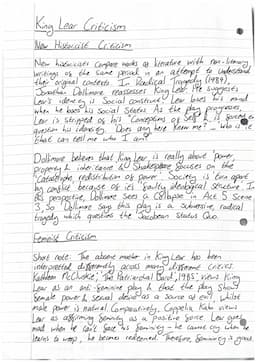 King Lear Criticism
New Historicist Criticism
New historicists compare works of literature with non-literary
writings of the same period in an attempt to understand
their original contexts. In Radical Tragedy (1984),
Jonathan Dollimore reassesses King Lear. He suggests
Lear's identity is social construct. Lear loses his mind
when he loses his social status. As the play progresses,
Lear is stripped of his "Conceptions of Self" & is forced to
question his identity. Does any here know me? ... Who is it
that can tell me who I am?
Dollimore believes that King Lear is really about 'power,
property & inheritance' & Shakespeare focuses on the
'Catastrophic redistribution of power'. Society is torn apart
by conflict because of its 'faulty ideological structure'. In
his perspective, Dollimore sees a collapse in Act 5 Scene
3. So Dollimore says this play is a subversive, radical
tragedy which questions the Jacobean status quo.
Feminist Criticism
Short note. The above matter in King Lear has been
interpreted differently across many different critics.
Kathleen McLuskie, 'The Patriarchal Bard', 1985 views King
Lear as an anti-feminine play & that the play shows
female power & sexual desire as a source of evil, whilst
male power is natural. Comparatively, Coppelia Kahn views
Lear as affirming feminity as a positive force. Lear goes
mad when he can't face his feminity - he cause cry when he
learns to weep, he becomes redeemed. Therefore, feminity is good.